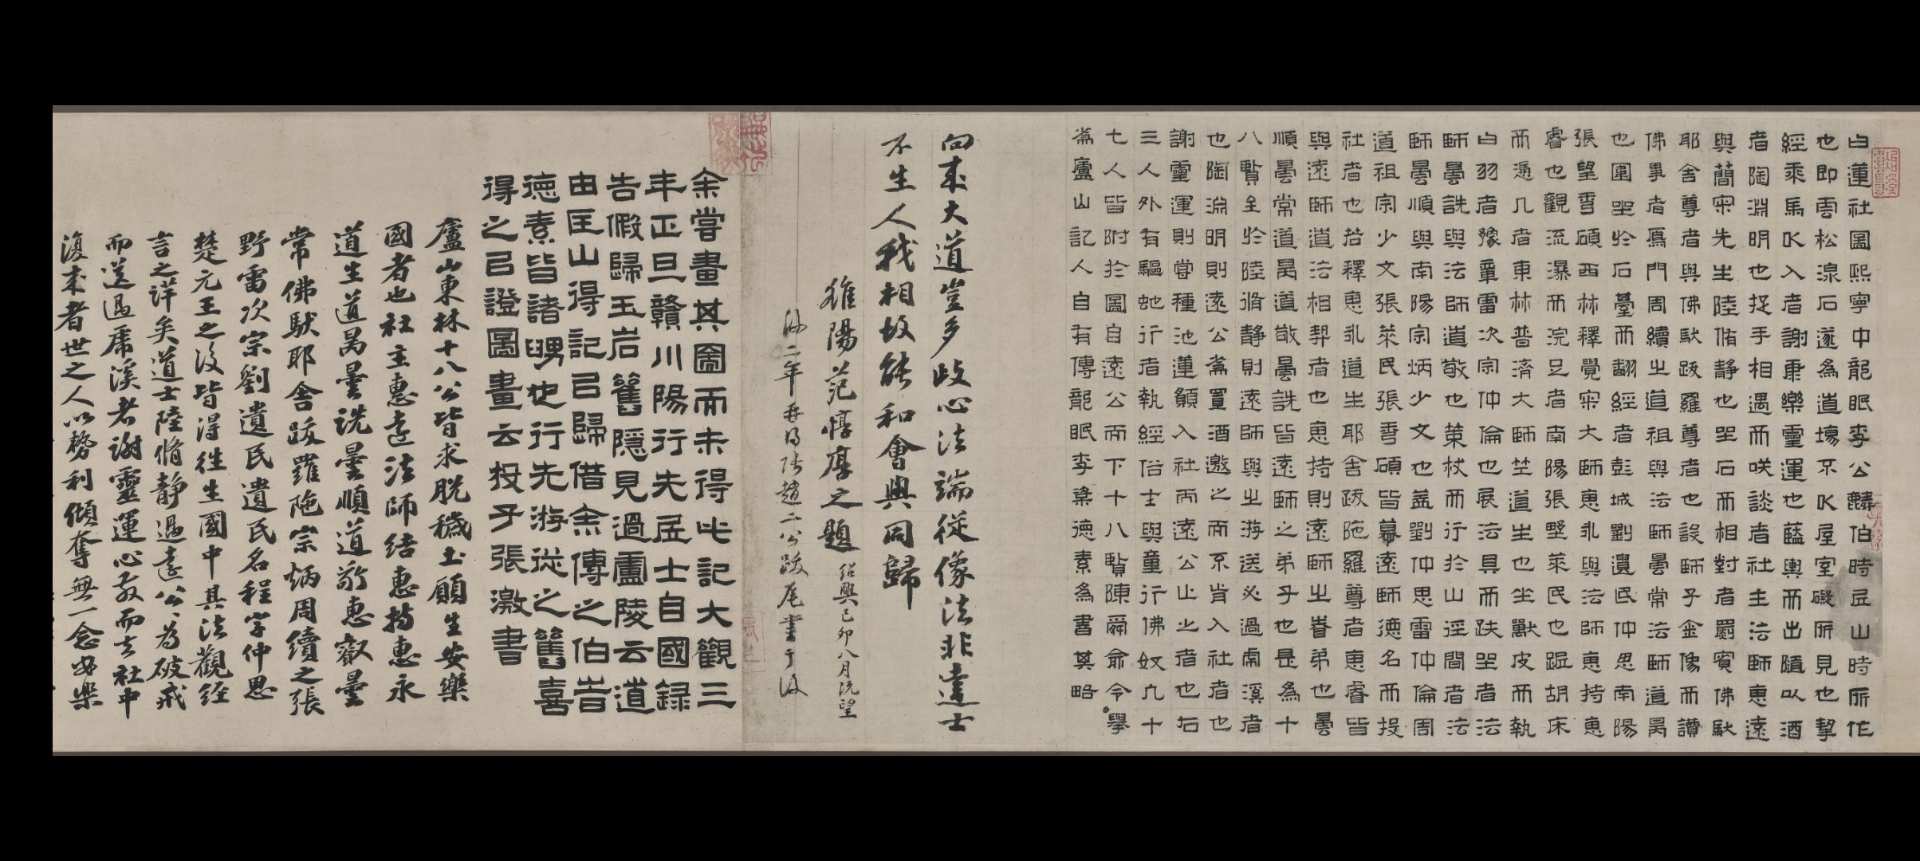 白蓮社圖熙寧中龍眠李公麟伯時居山時所作
也即雲松湶石遂為道場不以屋室礙所見也挈
經乘馬以入者謝康樂靈運也藍輿而出隨以酒
者陶淵明也捉手相遇而咲談者社主法師惠遠
與蕳宋先生陸脩静也坐石而相對者罽賓佛馱
耶舍尊者與佛馱跋羅尊者也設師子金像而讚
佛事者鴈門周續之道祖與法師曇常法師道昺
也圍坐於石臺而翻經者彭城劉遺民仲思南陽
張望季碩西林釋覺宋大師惠永與法師惠持惠
睿也觀流瀑而浣足者南陽張埜萊民也踞胡床
而憑几者東林普濟大師竺道生也坐獸皮而執
白羽者豫章雷次宗仲倫也展法具而趺坐者法
師曇詵與法師道敬也策杖而行於山逕間者法
師曇順與南陽宗炳少文也蓋劉仲思雷仲倫周
道祖宗少文張萊民張季碩皆慕遠師德名而投
社者也若釋惠永道生耶舍跋陁羅尊者惠睿皆
與遠師道法相契者也惠持則遠師之眷弟也曇
順曇常道昺道敬曇詵皆遠師之弟子也是為十
八賢至於陸脩静則遠師與之游送必過虎溪者
也陶淵明則遠公為置酒邀之而不肯入社者也
謝靈運則嘗種池蓮願入社而遠公止之者也右
三人外有驅虵行者執經俗士與童行佛奴凡十
七人皆附於圖自遠公而下十八賢陳舜俞令舉
為廬山記人自有傳龍眠李㮚德素為書其略
向來大道豈多歧心法端從像法非達士
不生人我相故能和會與同歸
雒陽范惇厚之題紹興己卯八月既望
後二年再得張趙二公跋尾書于後
余嘗畫其圖而未得此記大觀三
年正旦贛川陽行先居士自國録
告假歸玉岩舊隱見過廬陵云道
由匡山得記已歸借余傳之伯旹
德素皆諸甥也行先游從之舊喜
得之已證圖畫云投子張激書
廬山東林十八公皆求脫穢土願生安樂
國者也社主惠遠法師結惠持惠永
道生道昺曇詵曇順道敬惠叡曇
常佛馱耶舍跋羅陁宗炳周續之張
野雷次宗劉遺民遺民名程字仲思
楚元王之後皆得往生國中其法觀經
言之詳矣道士陸脩静過遠公為破戒
而送過虎溪者謝靈運心亂而去社中
復來者世之人以勢利傾奪無一念安樂